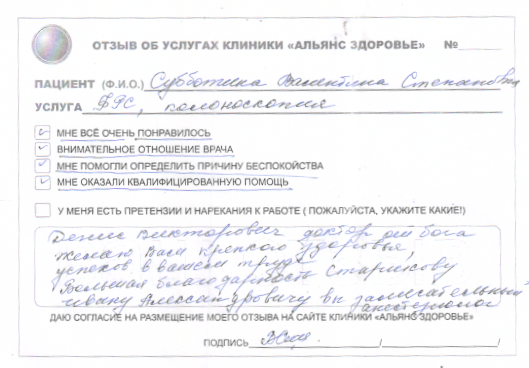 ОТЗЫВ ОБ УСЛУГАХ КЛИНИКИ «АЛЬЯНС ЗДОРОВЬЕ» №
ПАЦИЕНТ (Ф.И.О.) Субботина Валентина Степановна
УСЛУГА ФГС, колоноскопия
МНЕ ВСЁ ОЧЕНЬ ПОНРАВИЛОСЬ
ВНИМАТЕЛЬНОЕ ОТНОШЕНИЕ ВРАЧА
МНЕ ПОМОГЛИ ОПРЕДЕЛИТЬ ПРИЧИНУ БЕСПОКОЙСТВА
МНЕ ОКАЗАЛИ КВАЛИФИЦИРОВАННУЮ ПОМОЩЬ
У МЕНЯ ЕСТЬ ПРЕТЕНЗИИ И НАРЕКАНИЯ К РАБОТЕ ( ПОЖАЛУЙСТА, УКАЖИТЕ КАКИЕ!)
Денис Викторович доктор от бога
желаю Вам крепкого здоровья,
успехов в вашем труде
Большая благодарность Старикову
Ивану Александровичу вы замечательный
анестезиолог
ДАЮ СОГЛАСИЕ НА РАЗМЕЩЕНИЕ МОЕГО ОТЗЫВА НА САЙТЕ КЛИНИКИ «АЛЬЯНС ЗДОРОВЬЕ»
ПОДПИСЬ / /